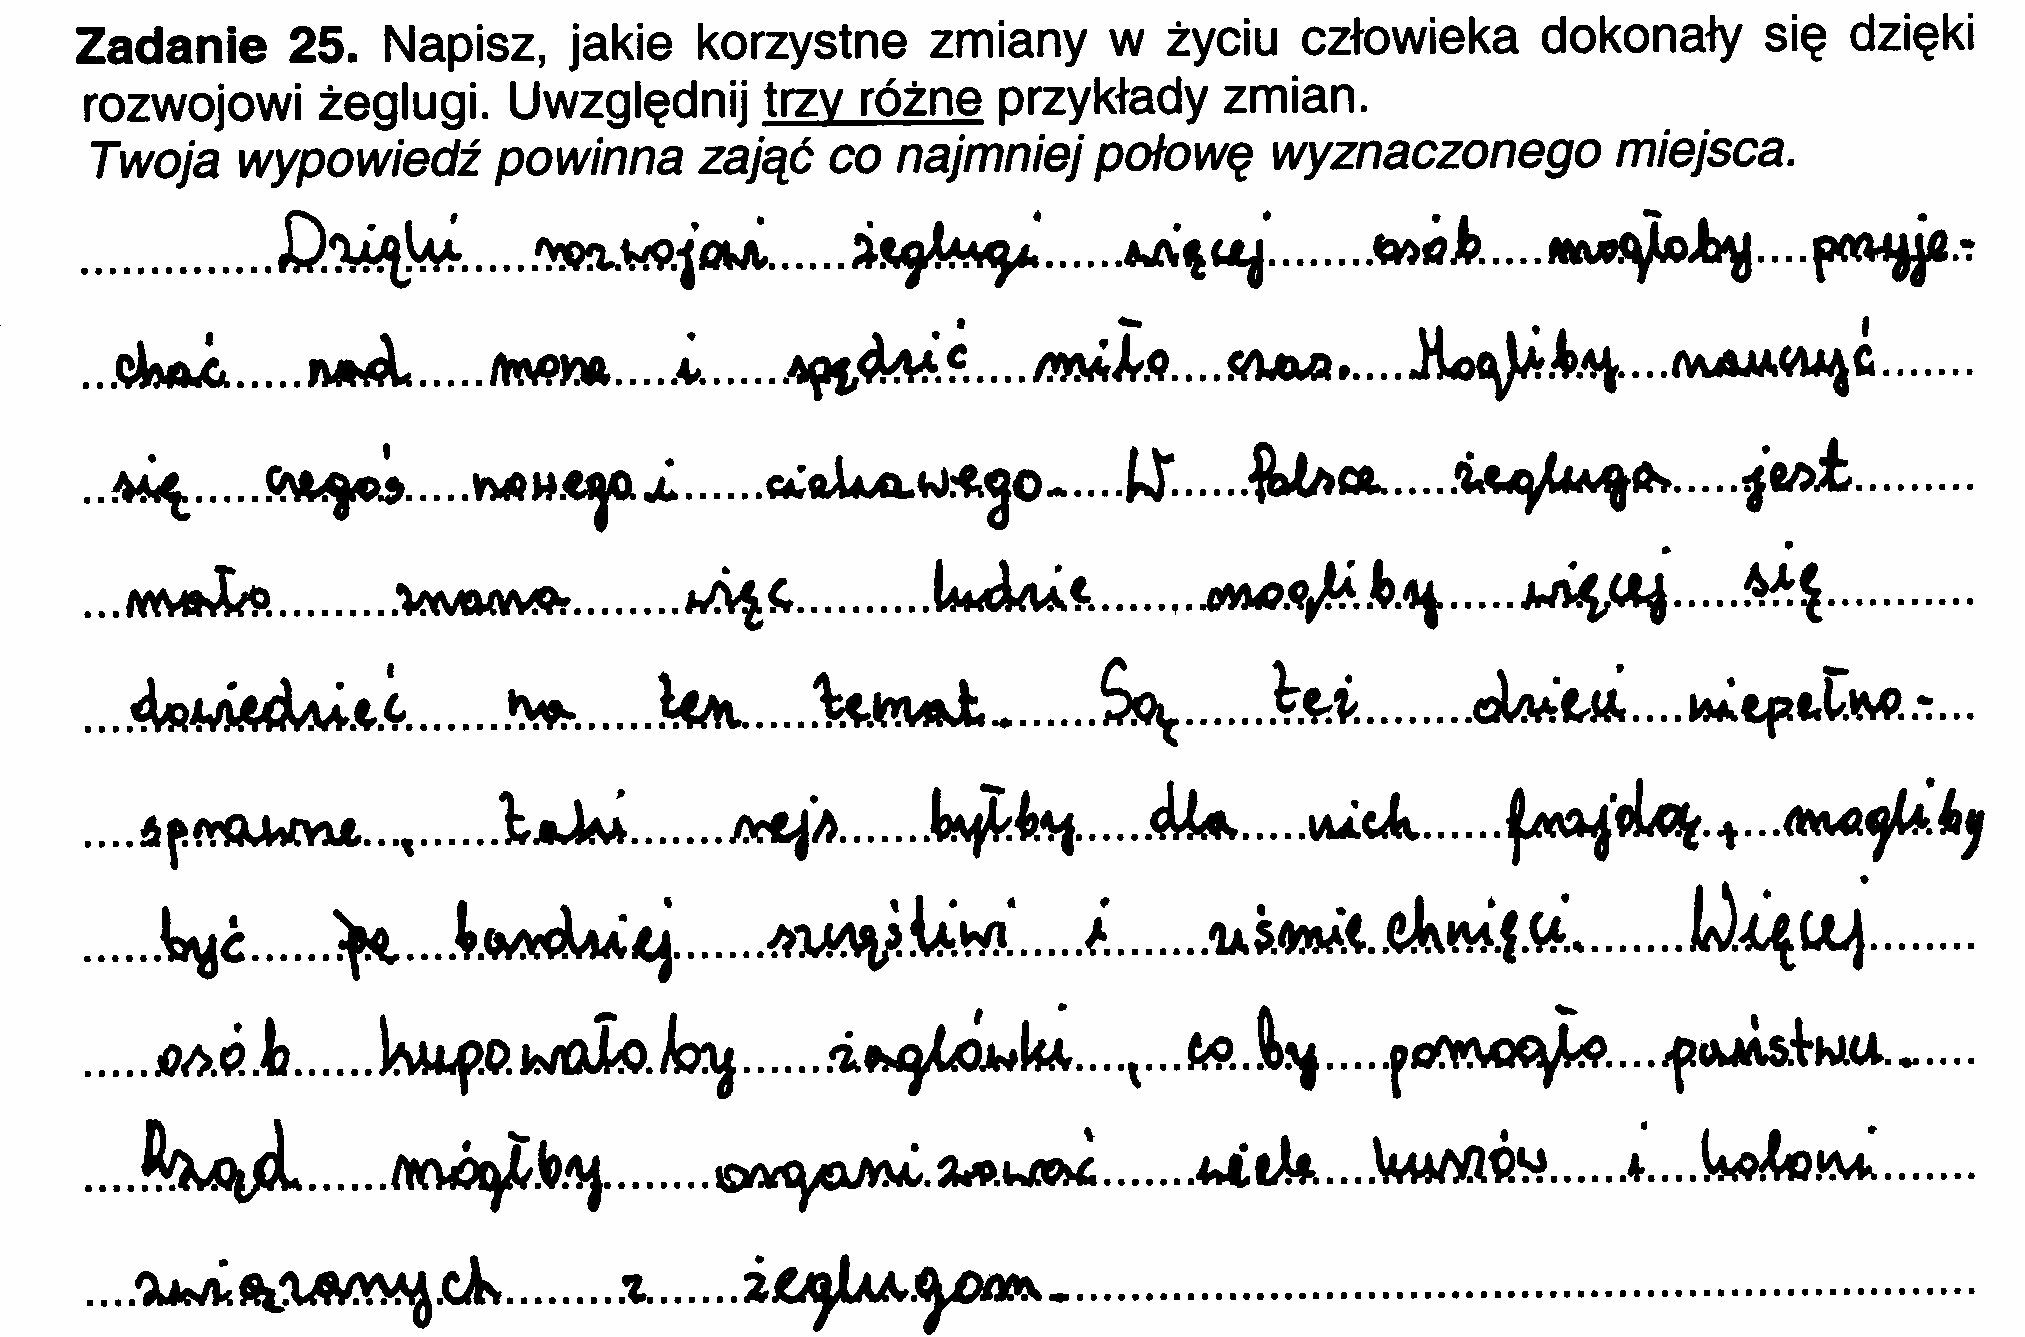 Zadanie 25. Napisz, jakie korzystne zmiany w życiu człowieka dokonały się dzięki
rozwojowi żeglugi. Uwzględnij trzy różne przykłady zmian.
Twoja wypowiedź powinna zająć co najmniej połowę wyznaczonego miejsca.
Dzięki rozwojowi żeglugi więcej osób mogłoby przyje-
chać nad morze i spędzić miło czas. Mogliby nauczyć
się czegoś nowego i ciekawego. W Polsce żegluga jest
mało znana więc ludzie mogliby więcej się
dowiedzieć na ten temat. Są też dzieci niepełno-
sprawne, taki rejs byłby dla nich frajdą, mogliby
być bardziej szczęśliwi i uśmiechnięci. Więcej
osób kupowałoby żaglówki, co by pomogło państwu.
Rząd mógłby organizować wiele kursów i koloni
związanych z żeglugom.